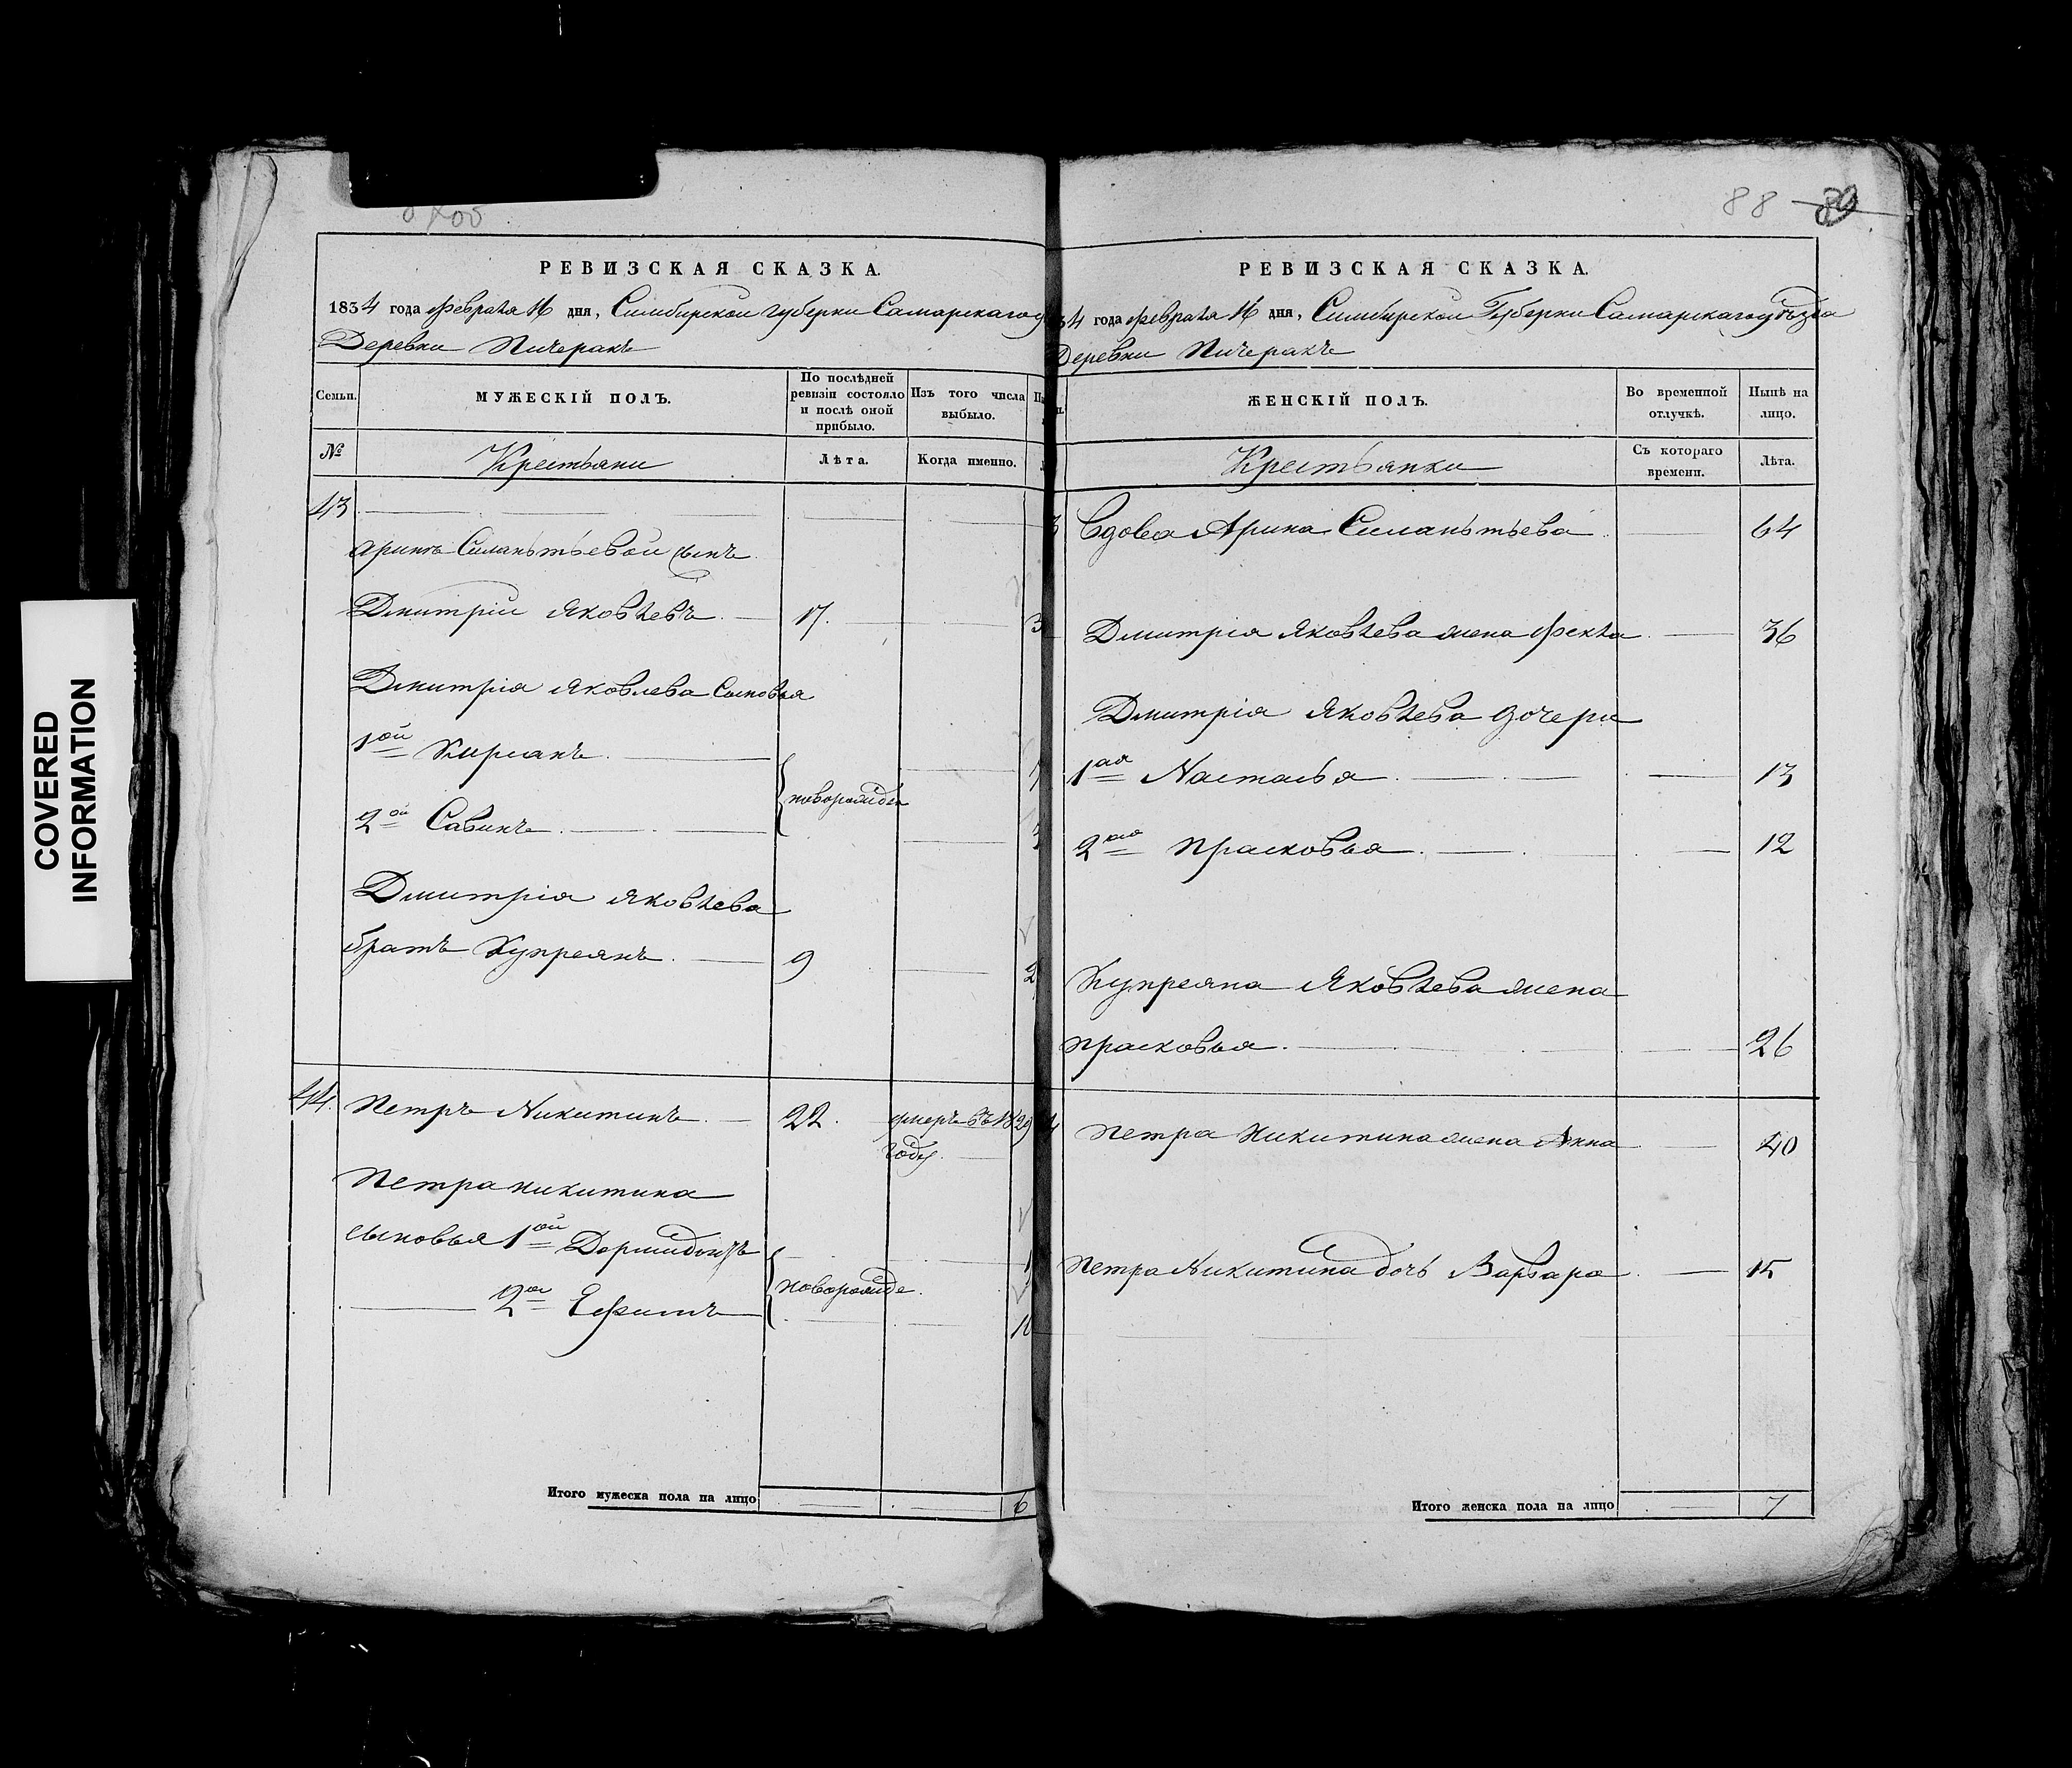 COVERED
INFORMATION
88 89
РЕВИЗСКАЯ СКАЗКА.
1834 года февраля 16 дня, Симбирской губерни Самарскаго у
Деревни Пичеракъ
Семьи.
МУЖЕСКІЙ ПОЛЪ.
По послѣдней ревизіи состояло и послѣ оной прибыло.
Изъ того числа выбыло.
№
Крестьяни
Лѣта.
Когда именно.
43
Арины Силантьевой сынъ
Дмитрій Яковлевъ. 17. 3
Дмитрія Яковлева Сыновья
1ой Кирсанъ.
новорожден
2ой Савинъ.
Дмитрія Яковлева
братъ Купреянъ. 9 2
44. Петръ Никитинъ. 22. умеръ въ 1829
году.
Петра Никитина
сыновья 1ой Дормидонтъ
новорожде.
2ой Ефимъ
Итого мужеска пола на лицо 6
РЕВИЗСКАЯ СКАЗКА.
34 года февраля 16 дня, Симбирской Губерни Самарскаго уѣзда
Деревни Пичеракъ
ЖЕНСКІЙ ПОЛЪ.
Во временной отлучкѣ.
Нынѣ на лицо.
Крестьянки
Съ котораго времени.
Лѣта.
3 Вдова Арина Силантьева 64
Дмитрія Яковлева жена Фекла 36
Дмитрія Яковлева дочери
1ая Настасья 13
2ая Прасковья 12
Купреяна Яковлева жена
Прасковья. 26
4 Петра Никитина жена Анна 40
Петра Никитина дочь Варвара 15
Итого женска пола на лицо 7